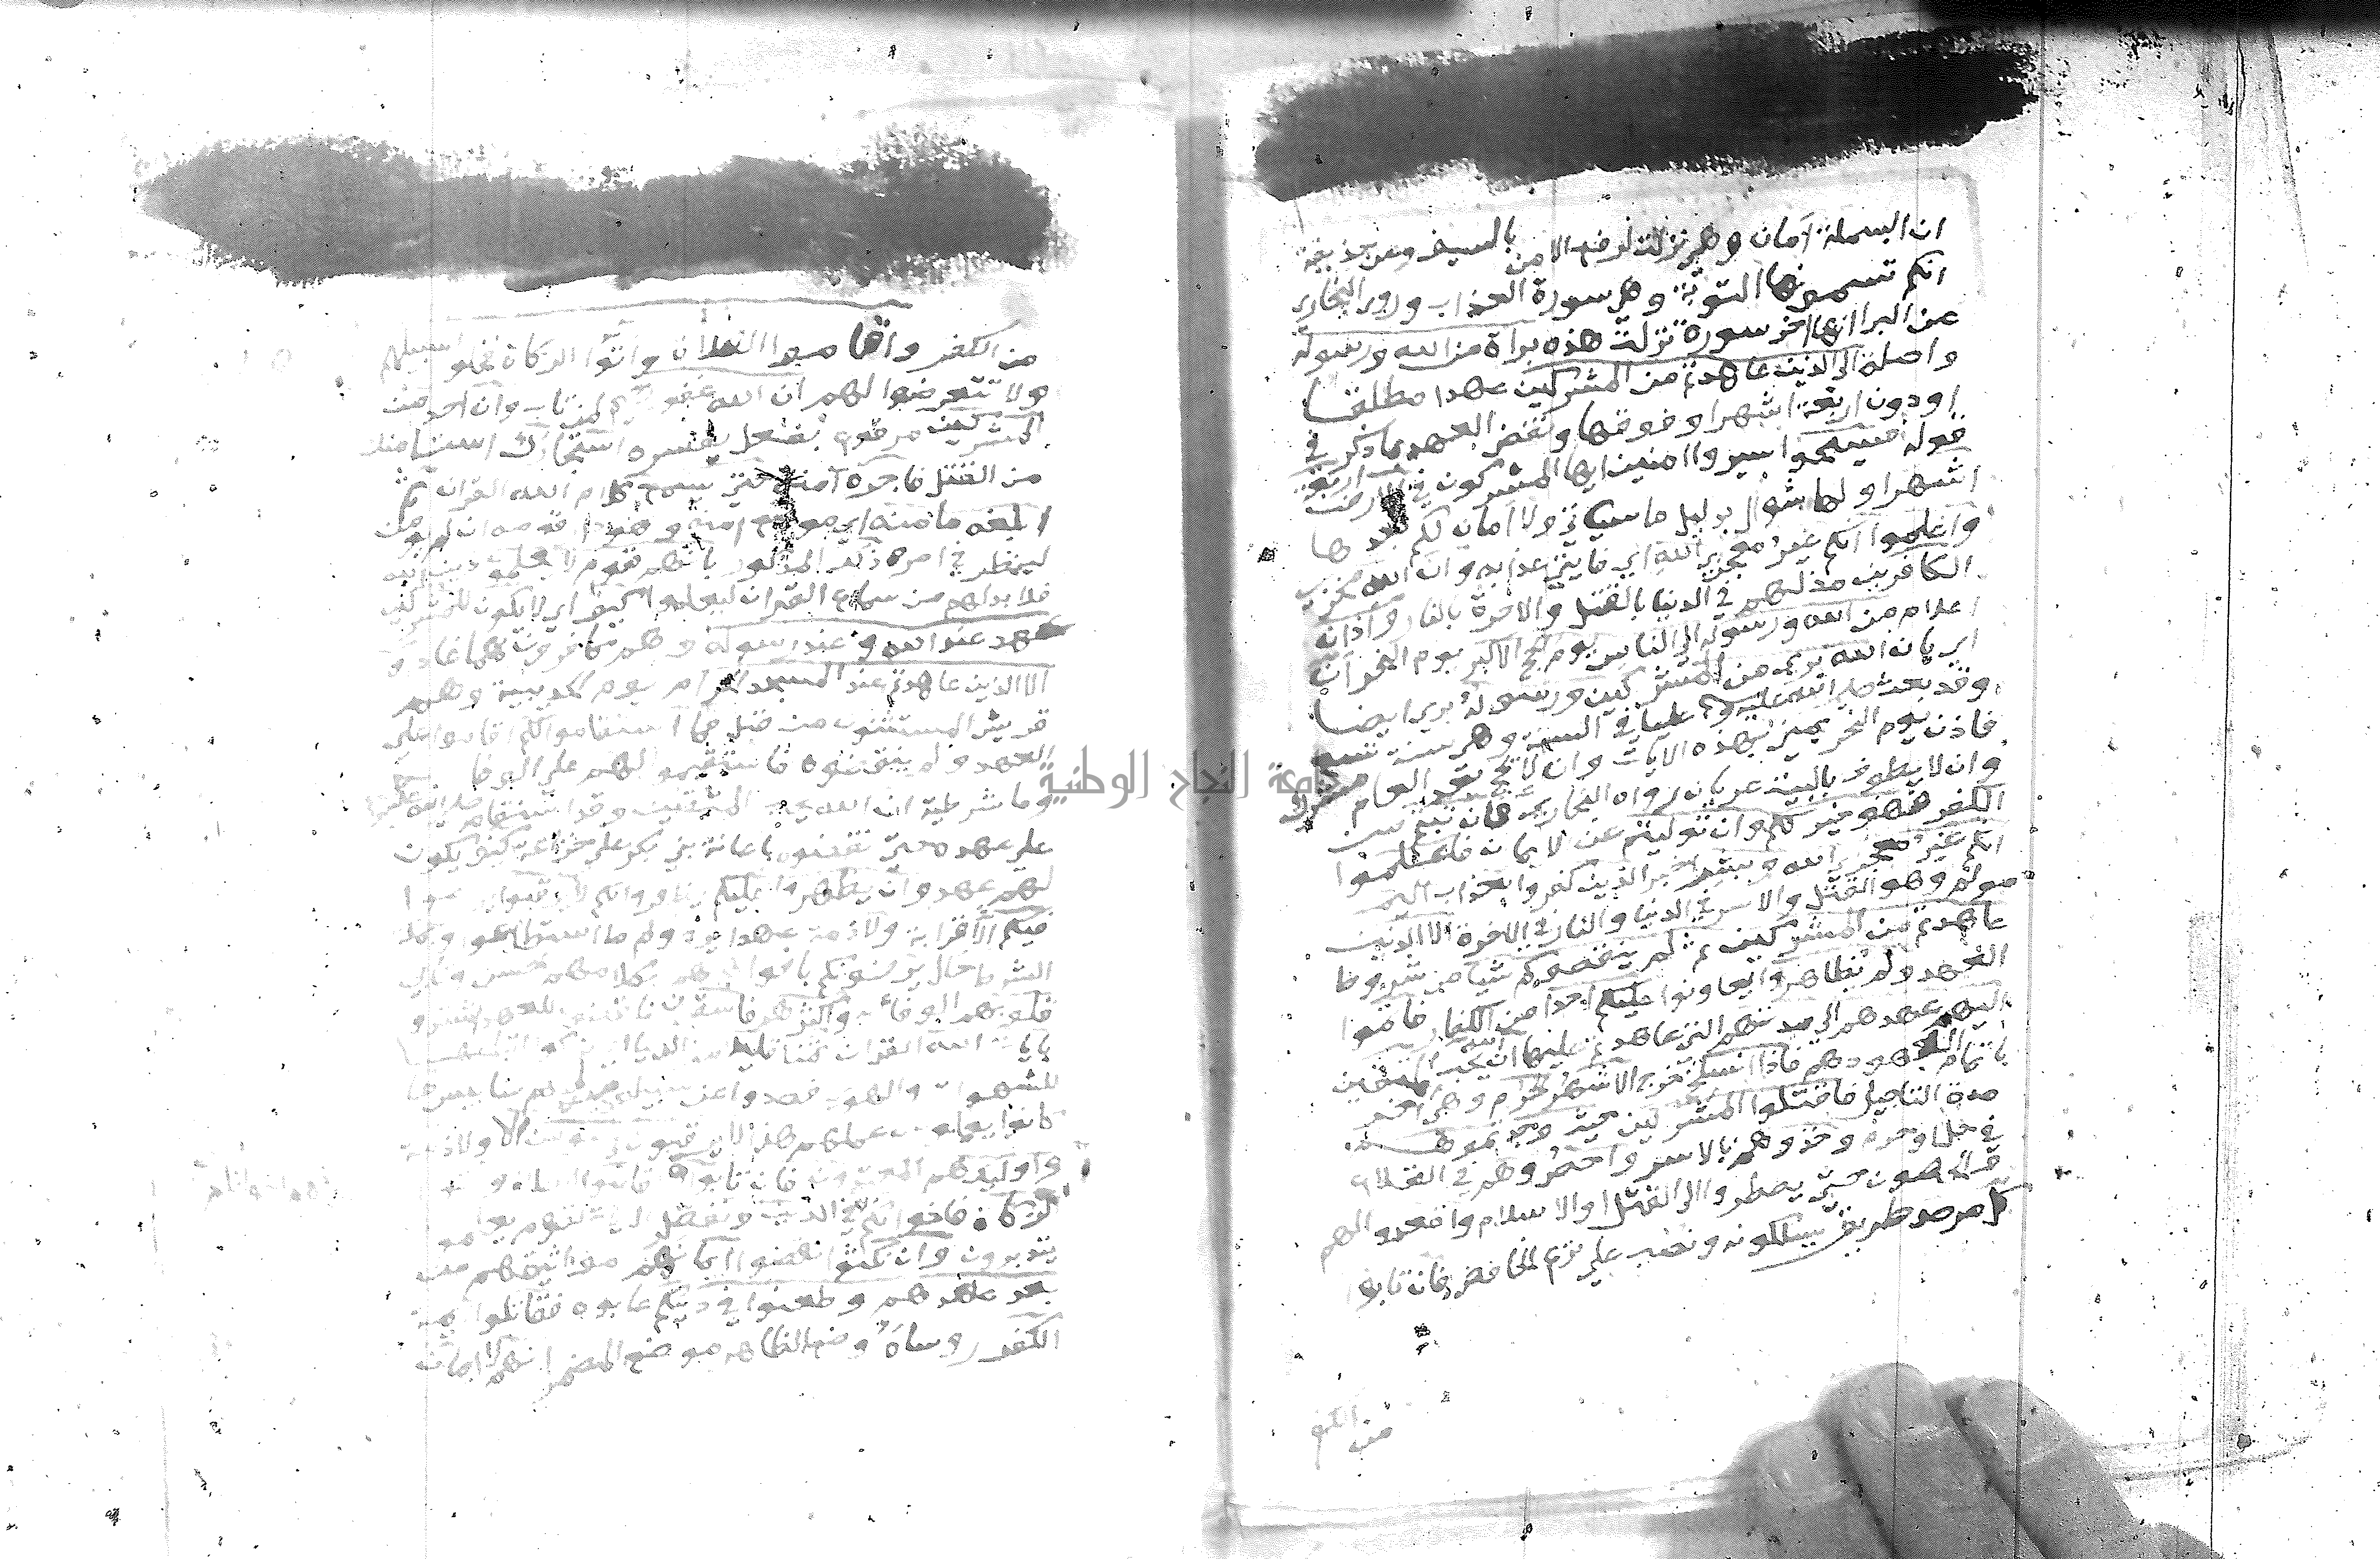 ان البسملة امان وهي نزلت لرفع الامن بالسيف وعن حذيفة
انكم تسمونها التوبة وهي سورة العذاب وروي البخاري
عن البرا انها اخر سورة نزلت هذه براة من الله ورسوله
واصلة الى الذين عاهدتم من المشركين عهدا مطلقا
او دون اربعة اشهر او فوقها ونقض العهد بما ذكر في
قوله فسيحوا سيروا امنين ايها المشركون في الارض اربعة
اشهر اولها شوال بدليل ما سياتي ولا امان لكم بعدها
واعلموا انكم غير معجزي الله اي فايتي عذابه وان الله مخزي
الكافرين مذلهم في الدنيا بالقتل والاخرة بالنار واذان
اعلام من الله ورسوله الى الناس يوم الحج الاكبر يوم النحر ان
اي بان الله بري من المشركين ورسوله بري ايضا
وقد بعث صلى الله عليه وسلم عليا في السنة وهي سنة تسع
فاذن يوم النحر بمنى بهذه الايات وان لا يحج بعد العام مشرك
وان لا يطوف بالبيت عريان رواه البخاري فان تبتم من
الكفر فهو خير لكم وان توليتم عن الايمان فاعلموا
انكم غير معجزي الله وبشر اخبر الذين كفروا بعذاب اليم
مولم وهو القتل والاسر في الدنيا والنار في الاخرة الا الذين
عاهدتم من المشركين ثم لم ينقصوكم شيا من شروط
العهد ولم يظاهروا يعاونوا عليكم احدا من الكفار فاتموا
اليهم عهدهم الى مدتهم التي عاهدتم عليها ان الله يحب المتقين
باتمام العهود فاذا انسلخ خرج الاشهر الحرم وهي اخر
مدة التاجيل فاقتلوا المشركين حيث وجدتموهم
في حل او حرم وخذوهم بالاسر واحصروهم في القلاع
والحصون حتى يضطروا الى القتل او الاسلام واقعدوا لهم
كل مرصد طريق يسلكونه ونصب على نزع الخافض فان تابوا
من الكفر
من الكفر واقاموا الصلاة واتوا الزكاة فخلوا سبيلهم
ولا تتعرضوا لهم ان الله غفور رحيم لمن تاب وان احد من
المشركين مرفوع بفعل يفسره استجارك استامنك
من القتل فاجره امنه حتى يسمع كلام الله القران ثم
ابلغه مامنه اي موضع امنه وهو دار قومه ان لم يومن
لينظر في امره ذلك المذكور بانهم قوم لا يعلمون دين الله
فلا بد لهم من سماع القران ليعلموا كيف اي لا يكون للمشركين
عهد عند الله وعند رسوله وهم كافرون بهما غادرون
الا الذين عاهدتم عند المسجد الحرام يوم الحديبية وهم
قريش المستثنون من قبل فما استقاموا لكم اقاموا على
العهد ولم ينقضوه فاستقيموا لهم على الوفا
وما شرطية ان الله يحب المتقين وقد استقام صلى الله عليه
على عهدهم حتى نقضوه باعانة بني بكر على خزاعة كيف يكون
لهم عهد وان يظهروا عليكم يظفروا بكم لا يرقبوا يراعوا
فيكم الا قرابة ولا ذمة عهدا بل يوذوكم ما استطاعوا وجملة
الشرط حال يرضونكم بافواههم بكلامهم الحسن وتابى
قلوبهم الوفا به واكثرهم فاسقون ناقضون للعهد اشتروا
بايات الله القران ثمنا قليلا من الدنيا اي تركوا اتباعها
للشهوات والهوى فصدوا عن سبيله دينه انهم سا بيس ما
كانوا يعملون عملهم هذا لا يرقبون في مومن الا ولا ذمة
واوليك هم المعتدون فان تابوا واقاموا الصلاة واتوا
الزكاة فاخوانكم في الدين ونفصل الايات لقوم يعلمون
يتدبرون وان نكثوا نقضوا ايمانهم مواثيقهم من
بعد عهدهم وطعنوا في دينكم عابوه فقاتلوا ايمة
الكفر روساه وضع الظاهر موضع المضمر انهم لا ايمان
جامعة النجاح الوطنية